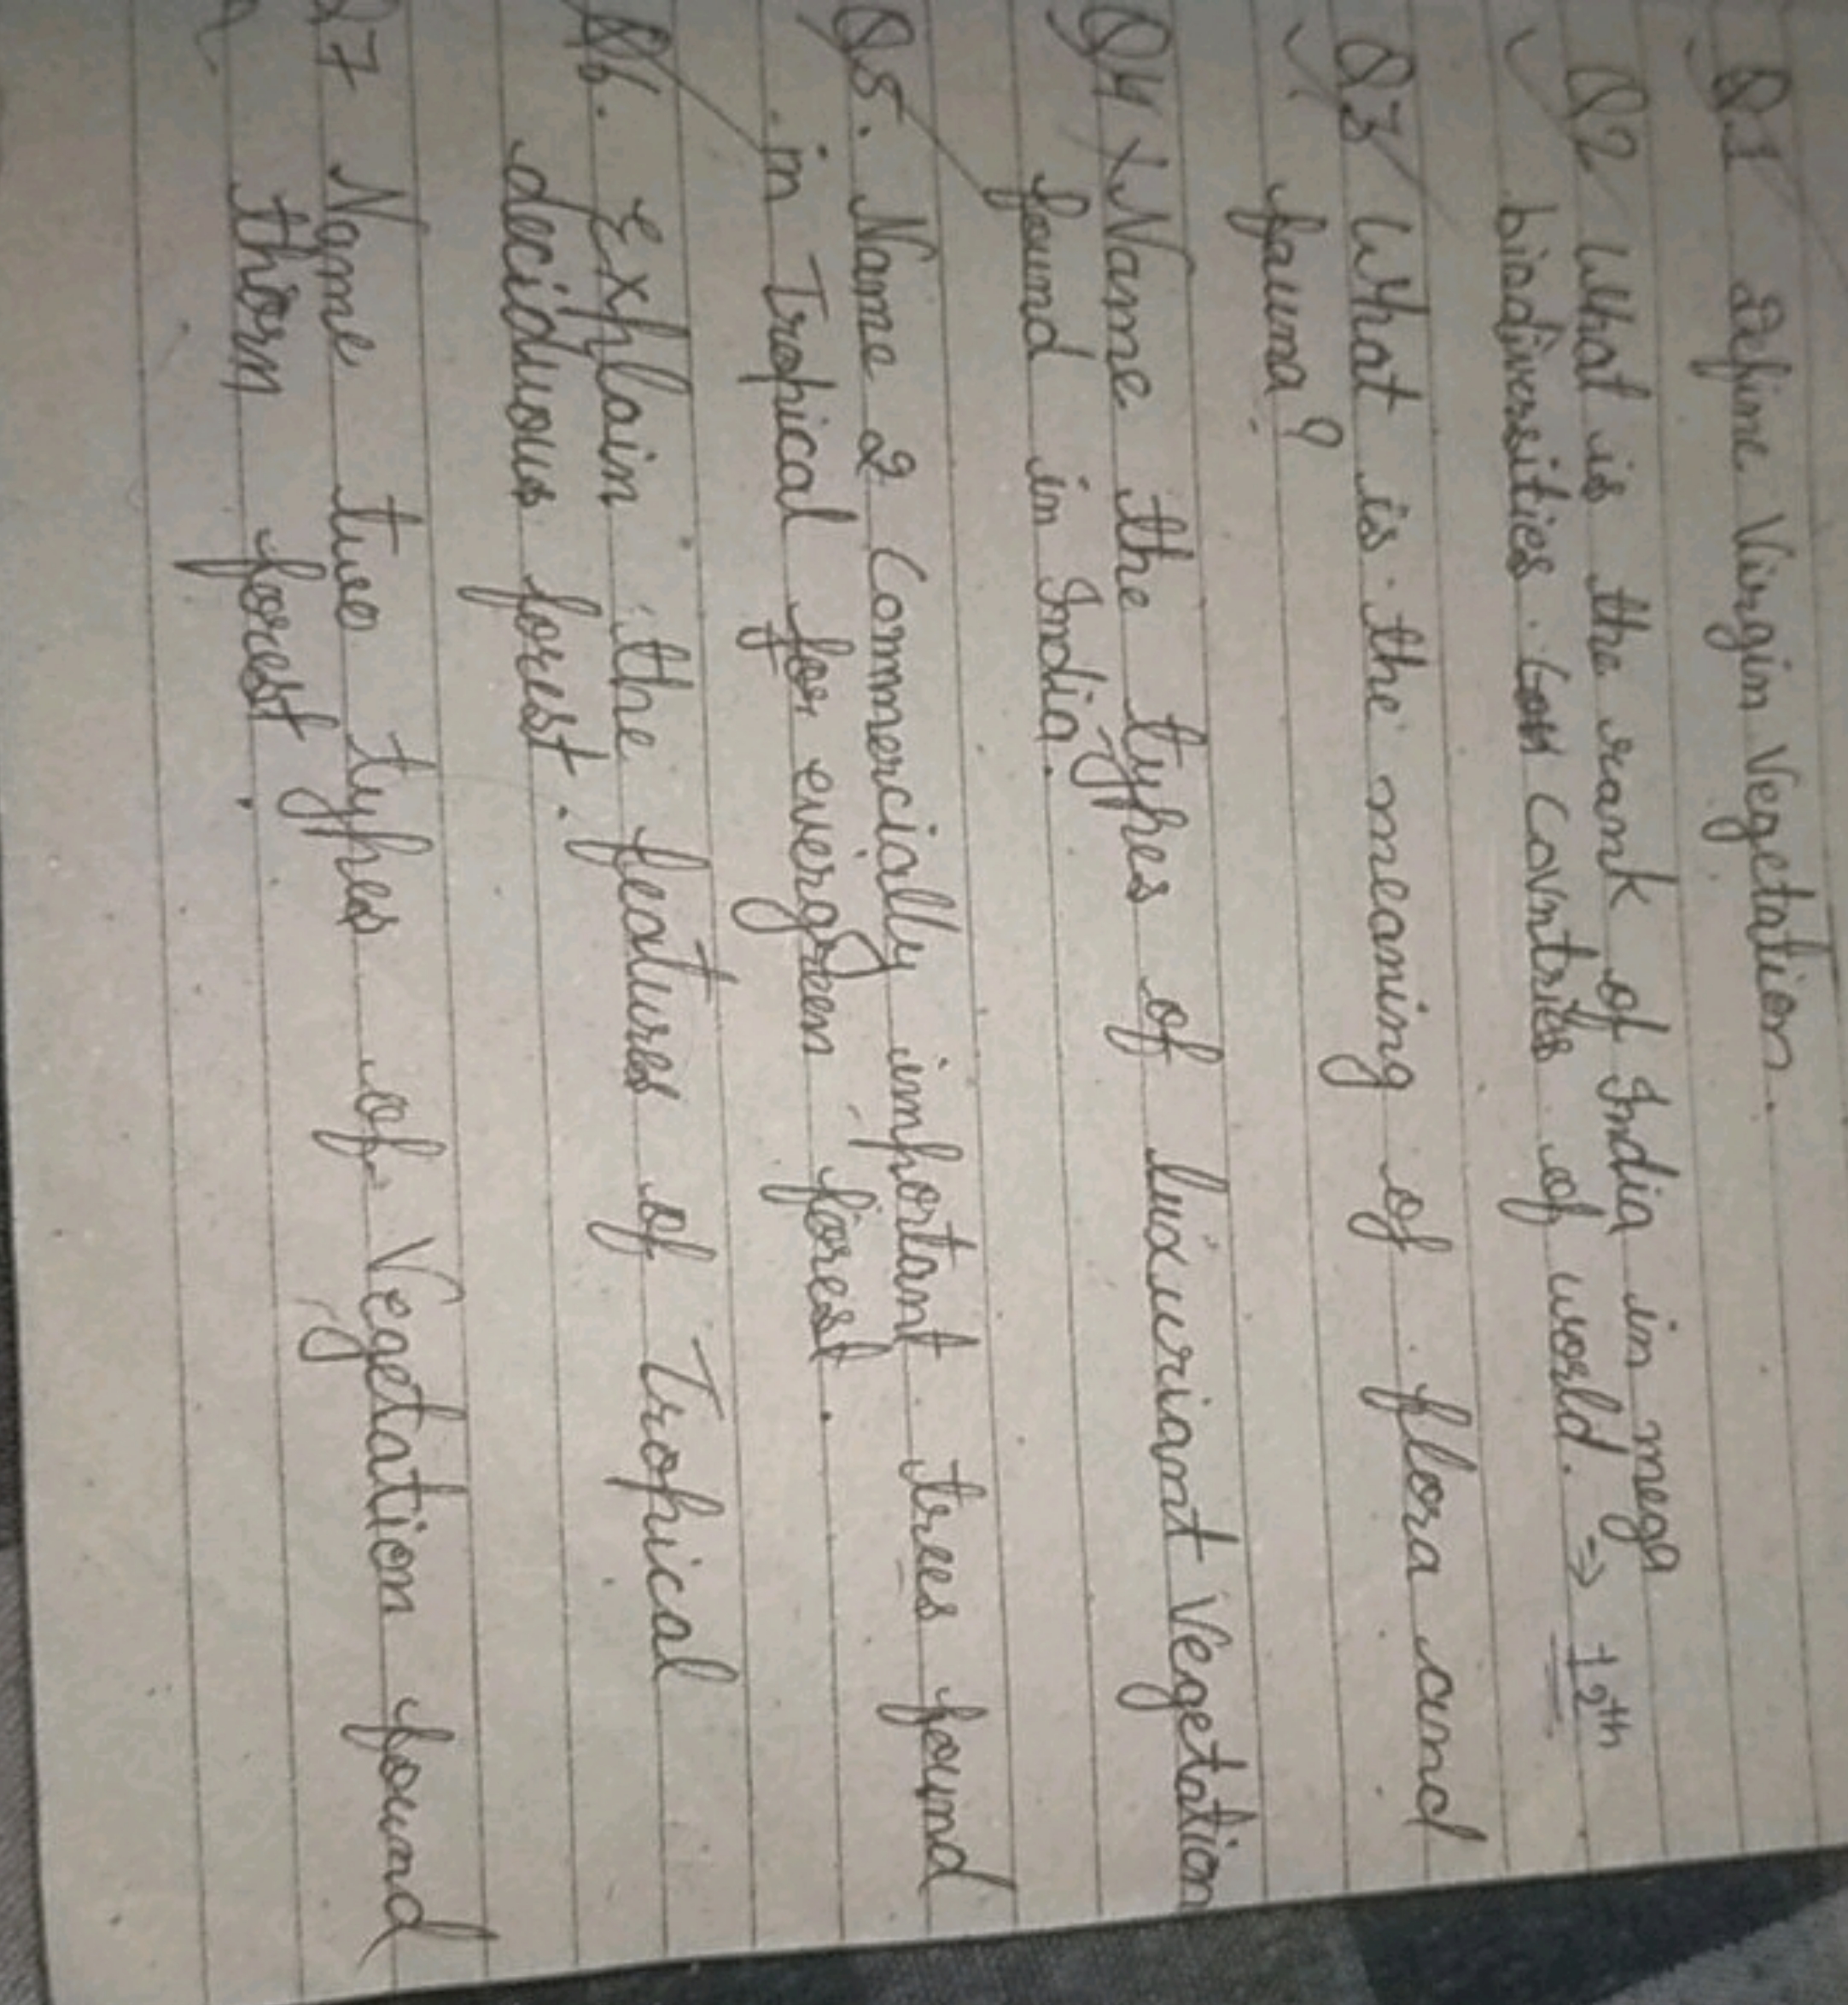 Q1 Define Virgin Vegetation.
Q2 What is the rank of India in mega
biodiversities countries of world. ⇒ 12th
Q3 What is the meaning of flora and
fauna?
Q4 x Name the types of luxuriant Vegetation
found in India.
Q5. Name 2 Commercially important trees found
in Tropical for evergreen forest.
Q6. Explain the features of Tropical
deciduous forest.
Q7 Name two types of Vegetation found
thorn forest.